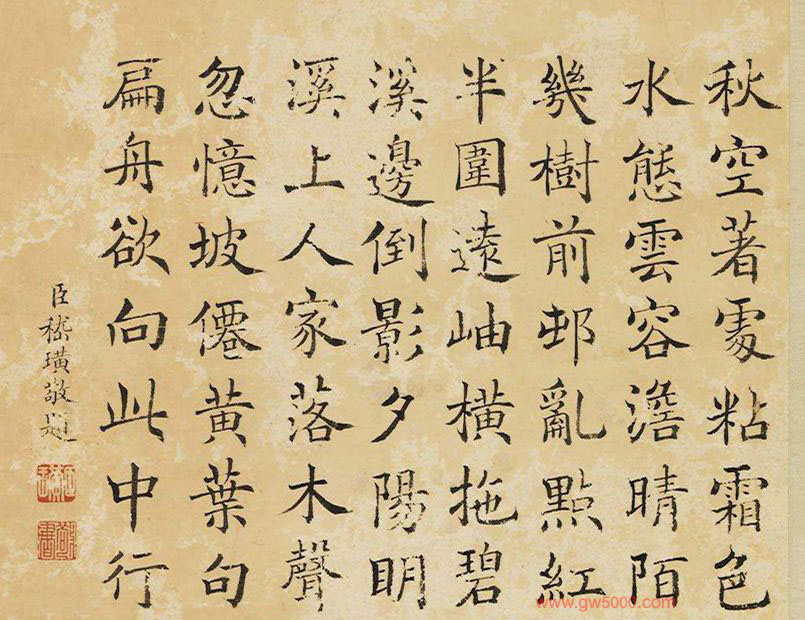 秋空著處粘霜色
水態雲容澹晴陌
幾樹前邨亂點紅
半圍遠岫橫拖碧
溪邊倒影夕陽明
溪上人家落木聲
忽憶坡僊黄葉句
扁舟欲向此中行
臣嵇璜敬題
www.gw5000.com